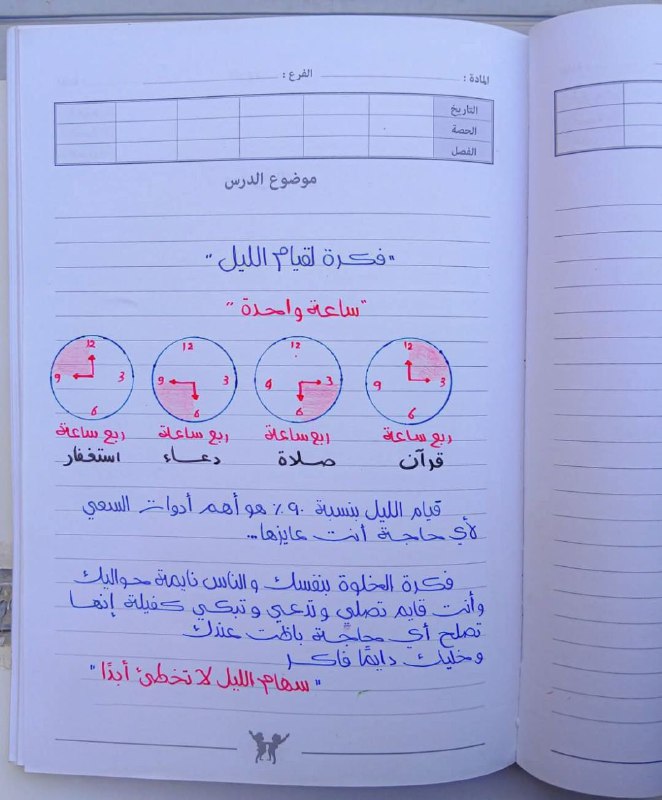 المادة : الفرع :
التاريخ
الحصة
الفصل
موضوع الدرس
"فكرة لقيام الليل"
"ساعة واحدة"
12 3 6 9
12 3 6 9
12 3 6 9
12 3 6 9
ربع ساعة ربع ساعة ربع ساعة ربع ساعة
قرآن صلاة دعاء استغفار
قيام الليل بنسبة ٩٠٪ هو أهم أدوات السعي
لأي حاجة أنت عايزها..
فكرة الخلوة بنفسك والناس نايمة حواليك
وأنت قايم تصلي وتدعي وتبكي كفيلة إنها
تصلح أي حاجة باظت عندك
وخليك دايمًا فاكر
"سهام الليل لا تخطئ أبدًا"